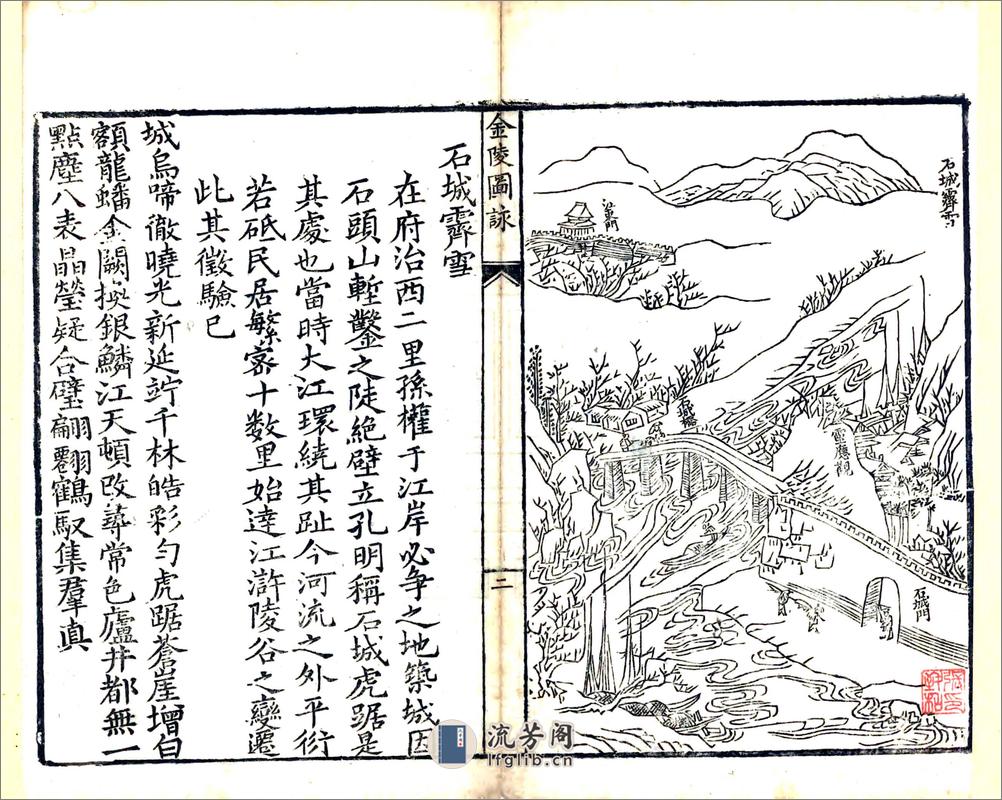 石城霽雪
石城橋
靈應觀
石城門
金陵圖詠
二
石城霽雪
在府治西二里孫權于江岸必爭之地築城因
石頭山塹鑿之陡絕壁立孔明稱石城虎踞是
其處也當時大江環繞其趾今河流之外平衍
若砥民居繁富十數里始達江滸陵谷之變遷
此其徵驗已
城烏啼徹曉光新延竚千林皓彩勻虎踞蒼崖增白
額龍蟠金闕換銀鱗江天頓改尋常色廬井都無一
點塵八表晶瑩疑合璧翩翩鶴馭集羣真
流芳阁
lfglib.cn